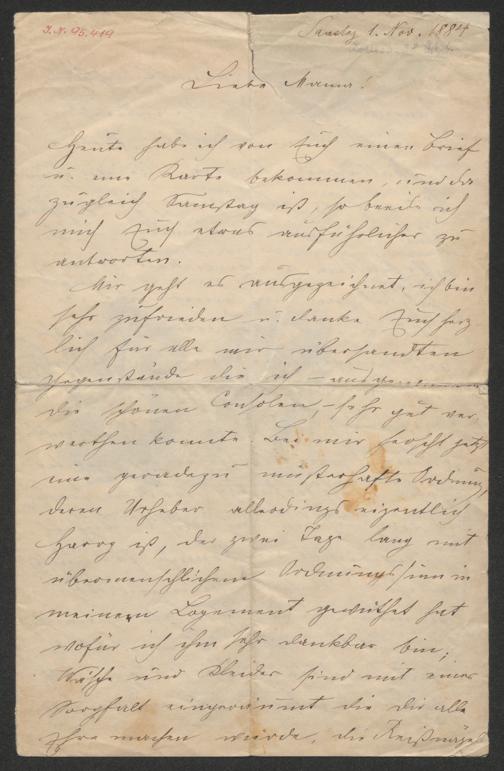 I.N. 95.419
Samstag 1. Nov. 1884
Liebe Mama!
Heute habe ich von Euch einen Brief
u. eine Karte bekommen, und da
zugleich Samstag ist, so beeile ich
mich Euch etwas ausführlicher zu
antworten.
Mir geht es ausgezeichnet, ich bin
sehr zufrieden u. danke Euch herz
lich für alle mir übersandten
Gegenstände die ich – ausgenommen
die schönen Consolen, – sehr gut ver
werthen konnte. Bei mir herscht jetzt
eine geradezu musterhafte Ordnung,
deren Urheber allerdings eigentlich
Harry ist, der zwei Tage lang mit
übermenschlichem Ordnungssinn in
meinem Logement gewüthet hat
wofür ich ihm sehr dankbar bin;
Wäsche und Kleider sind mit einer
Sorgfalt eingeräumt die dir alle
Ehre machen würde, die Reißnägel